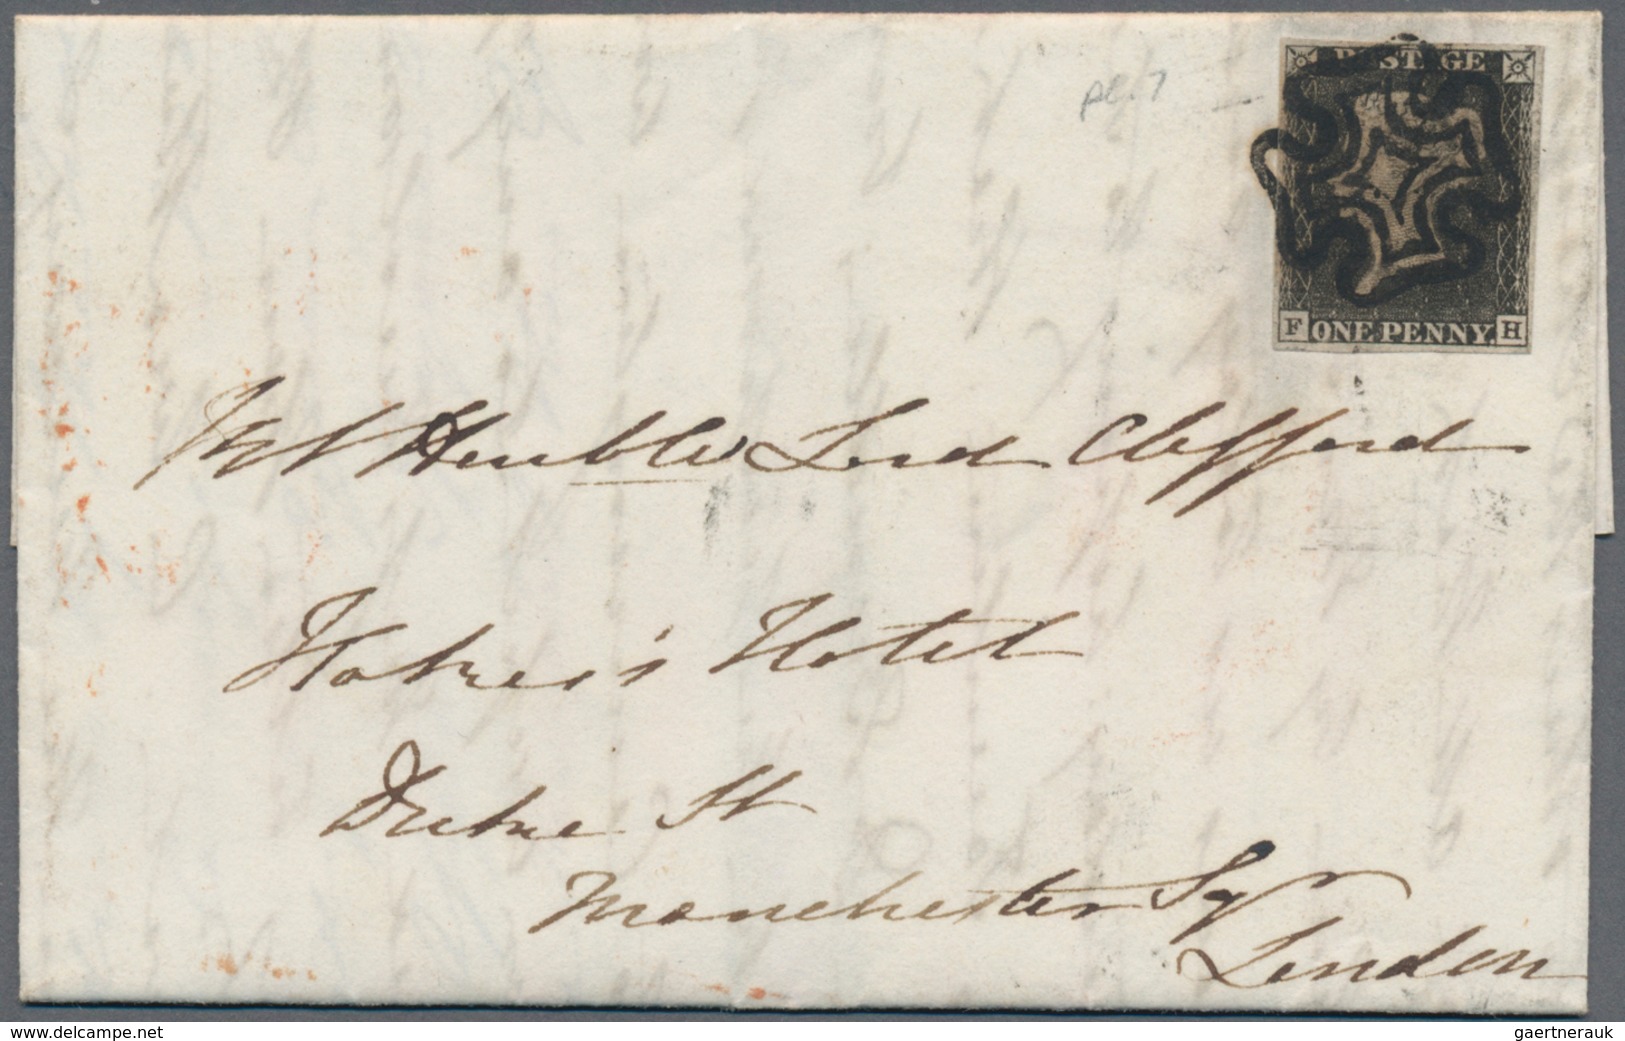 POSTAGE
pl. 7
F ONE PENNY. H
Honble Lord Clifford
Hotel
Duke St
Manchester Sq
London
www.delcampe.net
gaertnerauk